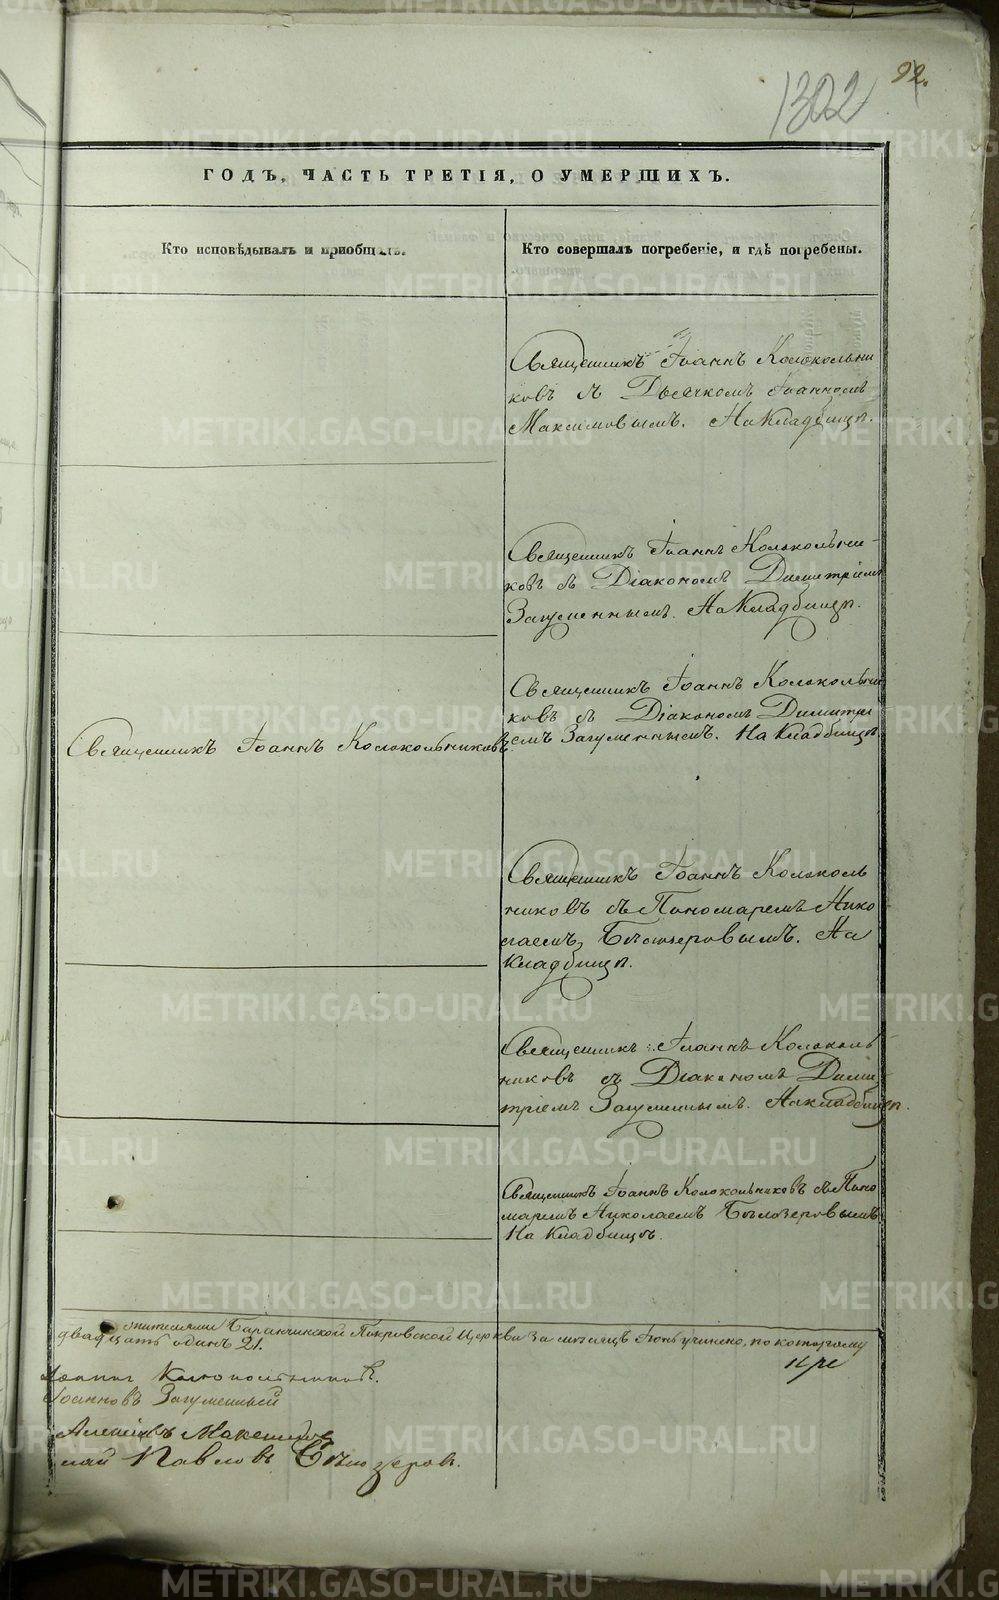 92.
1302
ГОДЪ, ЧАСТЬ ТРЕТІЯ, О УМЕРШИХЪ.
Кто исповѣдывалъ и приобщалъ.
Кто совершалъ погребеніе, и гдѣ погребены.
Священникъ Іоаннъ Колокольни
ковъ съ Дьячкомъ Іоанномъ
Максимовымъ. На Кладбищѣ.
Священникъ Іоаннъ Колокольни-
ковъ съ Діакономъ Димитріемъ
Загуменнымъ. На Кладбищѣ.
Священникъ Іоаннъ Колокольни
ковъ съ Діакономъ Димитрі
емъ Загуменнымъ. На Кладбищѣ
Священникъ Іоаннъ Колокольниковъ
Священникъ Іоаннъ Колоколь
никовъ съ Пономаремъ Нико
лаемъ Бѣлозеровымъ. На
Кладбищѣ.
Священникъ Іоаннъ Колоколь
никовъ съ Діакономъ Дими
тріемъ Загуменнымъ. На кладбищѣ.
Священникъ Іоаннъ Колокольниковъ съ Поно
маремъ Николаемъ Бѣлозеровымъ
На Кладбищѣ.
Баранчинской Покровской Церкви за мѣсяцъ Іюнь учинено, по которому
двадцать одинъ 21.
Іоаннъ Колокольниковъ.
Іоанновъ Загуменный
Алексѣевъ Максимовъ
лай Павловъ Бѣлозеровъ.
METRIKI.GASO-URAL.RU